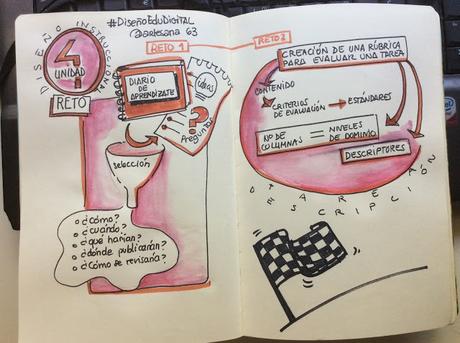 DISEÑO INSTRUCCIONAL
4
UNIDAD
RETO
#DiseñoEduDigital
@artesana 63
RETO 1
DIARIO
DE
APRENDIZAJE
ideas
Preguntas
selección
¿Cómo?
¿cuándo?
¿qué harían?
¿dónde publicarán?
¿Cómo se revisaría?
RETO 2
CREACIÓN DE UNA RÚBRICA
PARA EVALUAR UNA TAREA
CONTENIDO
CRITERIOS
DE EVALUACIÓN
ESTÁNDARES
Nº DE
COLUMNAS
=
NIVELES
DE DOMINIO
DESCRIPTORES
TAREA
DESCRIPCIÓN